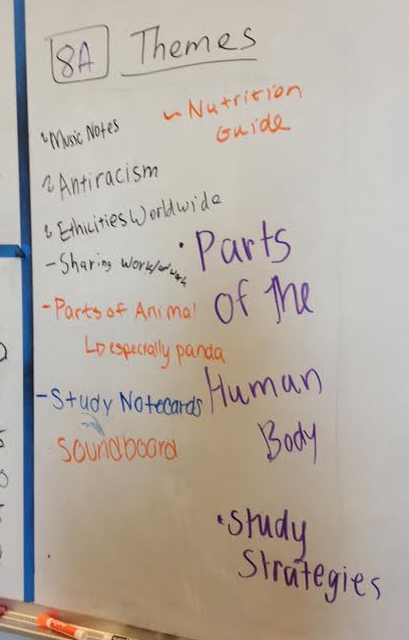 8A Themes
~ Music Notes
~ Nutrition
Guide
~ Antiracism
~ Ethicities Worldwide
- Sharing work/
- Parts of Animal
↳ especially panda
- Study Notecards
Soundboard
• Parts
of the
Human
Body
• Study
Strategies